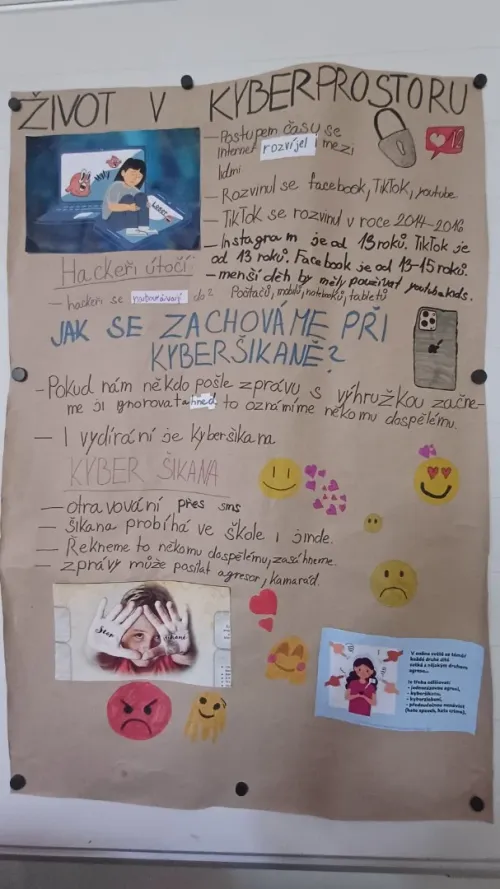 ŽIVOT V KYBERPROSTORU
— Postupem času se
Internet rozvíjel i mezi
lidmi
— Rozvinul se facebook, TikTok, youtube
— TikTok se rozvinul v roce 2014-2016
— Instagram je od 13 roků. TikTok je
od 13 roků. Facebook je od 13-15 roků.
— menší děti by měly používat youtube kids.
Hackeři útočí
— hackeři se nabourávají do? Počítačů, mobilů, notebooků, tabletů
JAK SE ZACHOVÁME PŘI
KYBERŠIKANĚ?
— Pokud nám někdo pošle zprávu s výhružkou začne-
me ji ignorovat a hned to oznámíme někomu dospělému.
— I vydírání je kyberšikana
KYBER ŠIKANA
— otravování přes sms
— šikana probíhá ve škole i jinde.
— Řekneme to někomu dospělému, zasáhneme.
— zprávy může posílat agresor, kamarád.
Stop šikaně
každé druhé dítě
Je třeba odlišovat:
- kyberšikanu,